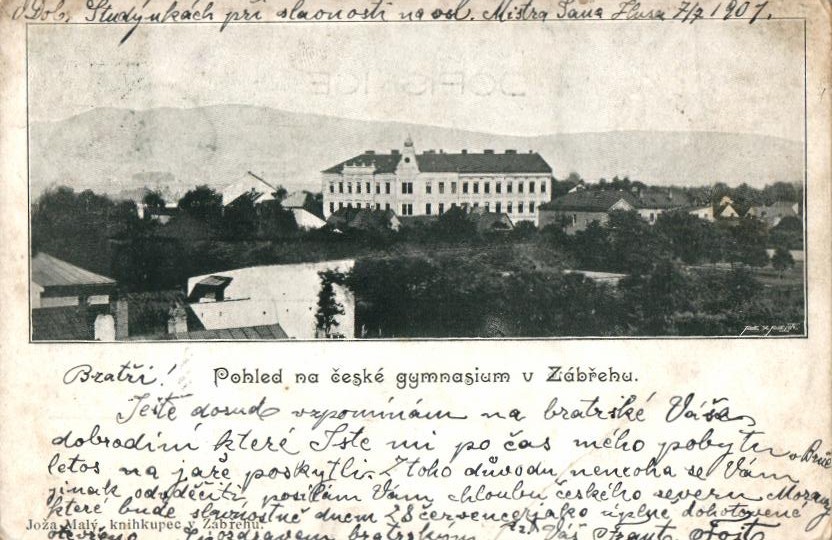 V Dol. Studýnkách při slavnosti na osl. Mistra Jana Husa 7/7 1907.
Bratři!
Pohled na české gymnasium v Zábřehu.
Ještě dosud vzpomínám na bratrské Vaše
dobrodiní které Jste mi po čas mého pobytu v Brně
letos na jaře poskytli. Z toho důvodu nemoha se Vám
jinak odvděčiti posílám Vám chloubu českého severu Moravy
které bude slavnostně dnem 28 července jako úplně dohotovené
Joža Malý, knihkupec v Zábřehu.
otevřeno. S pozdravem bratrským Váš Frant.